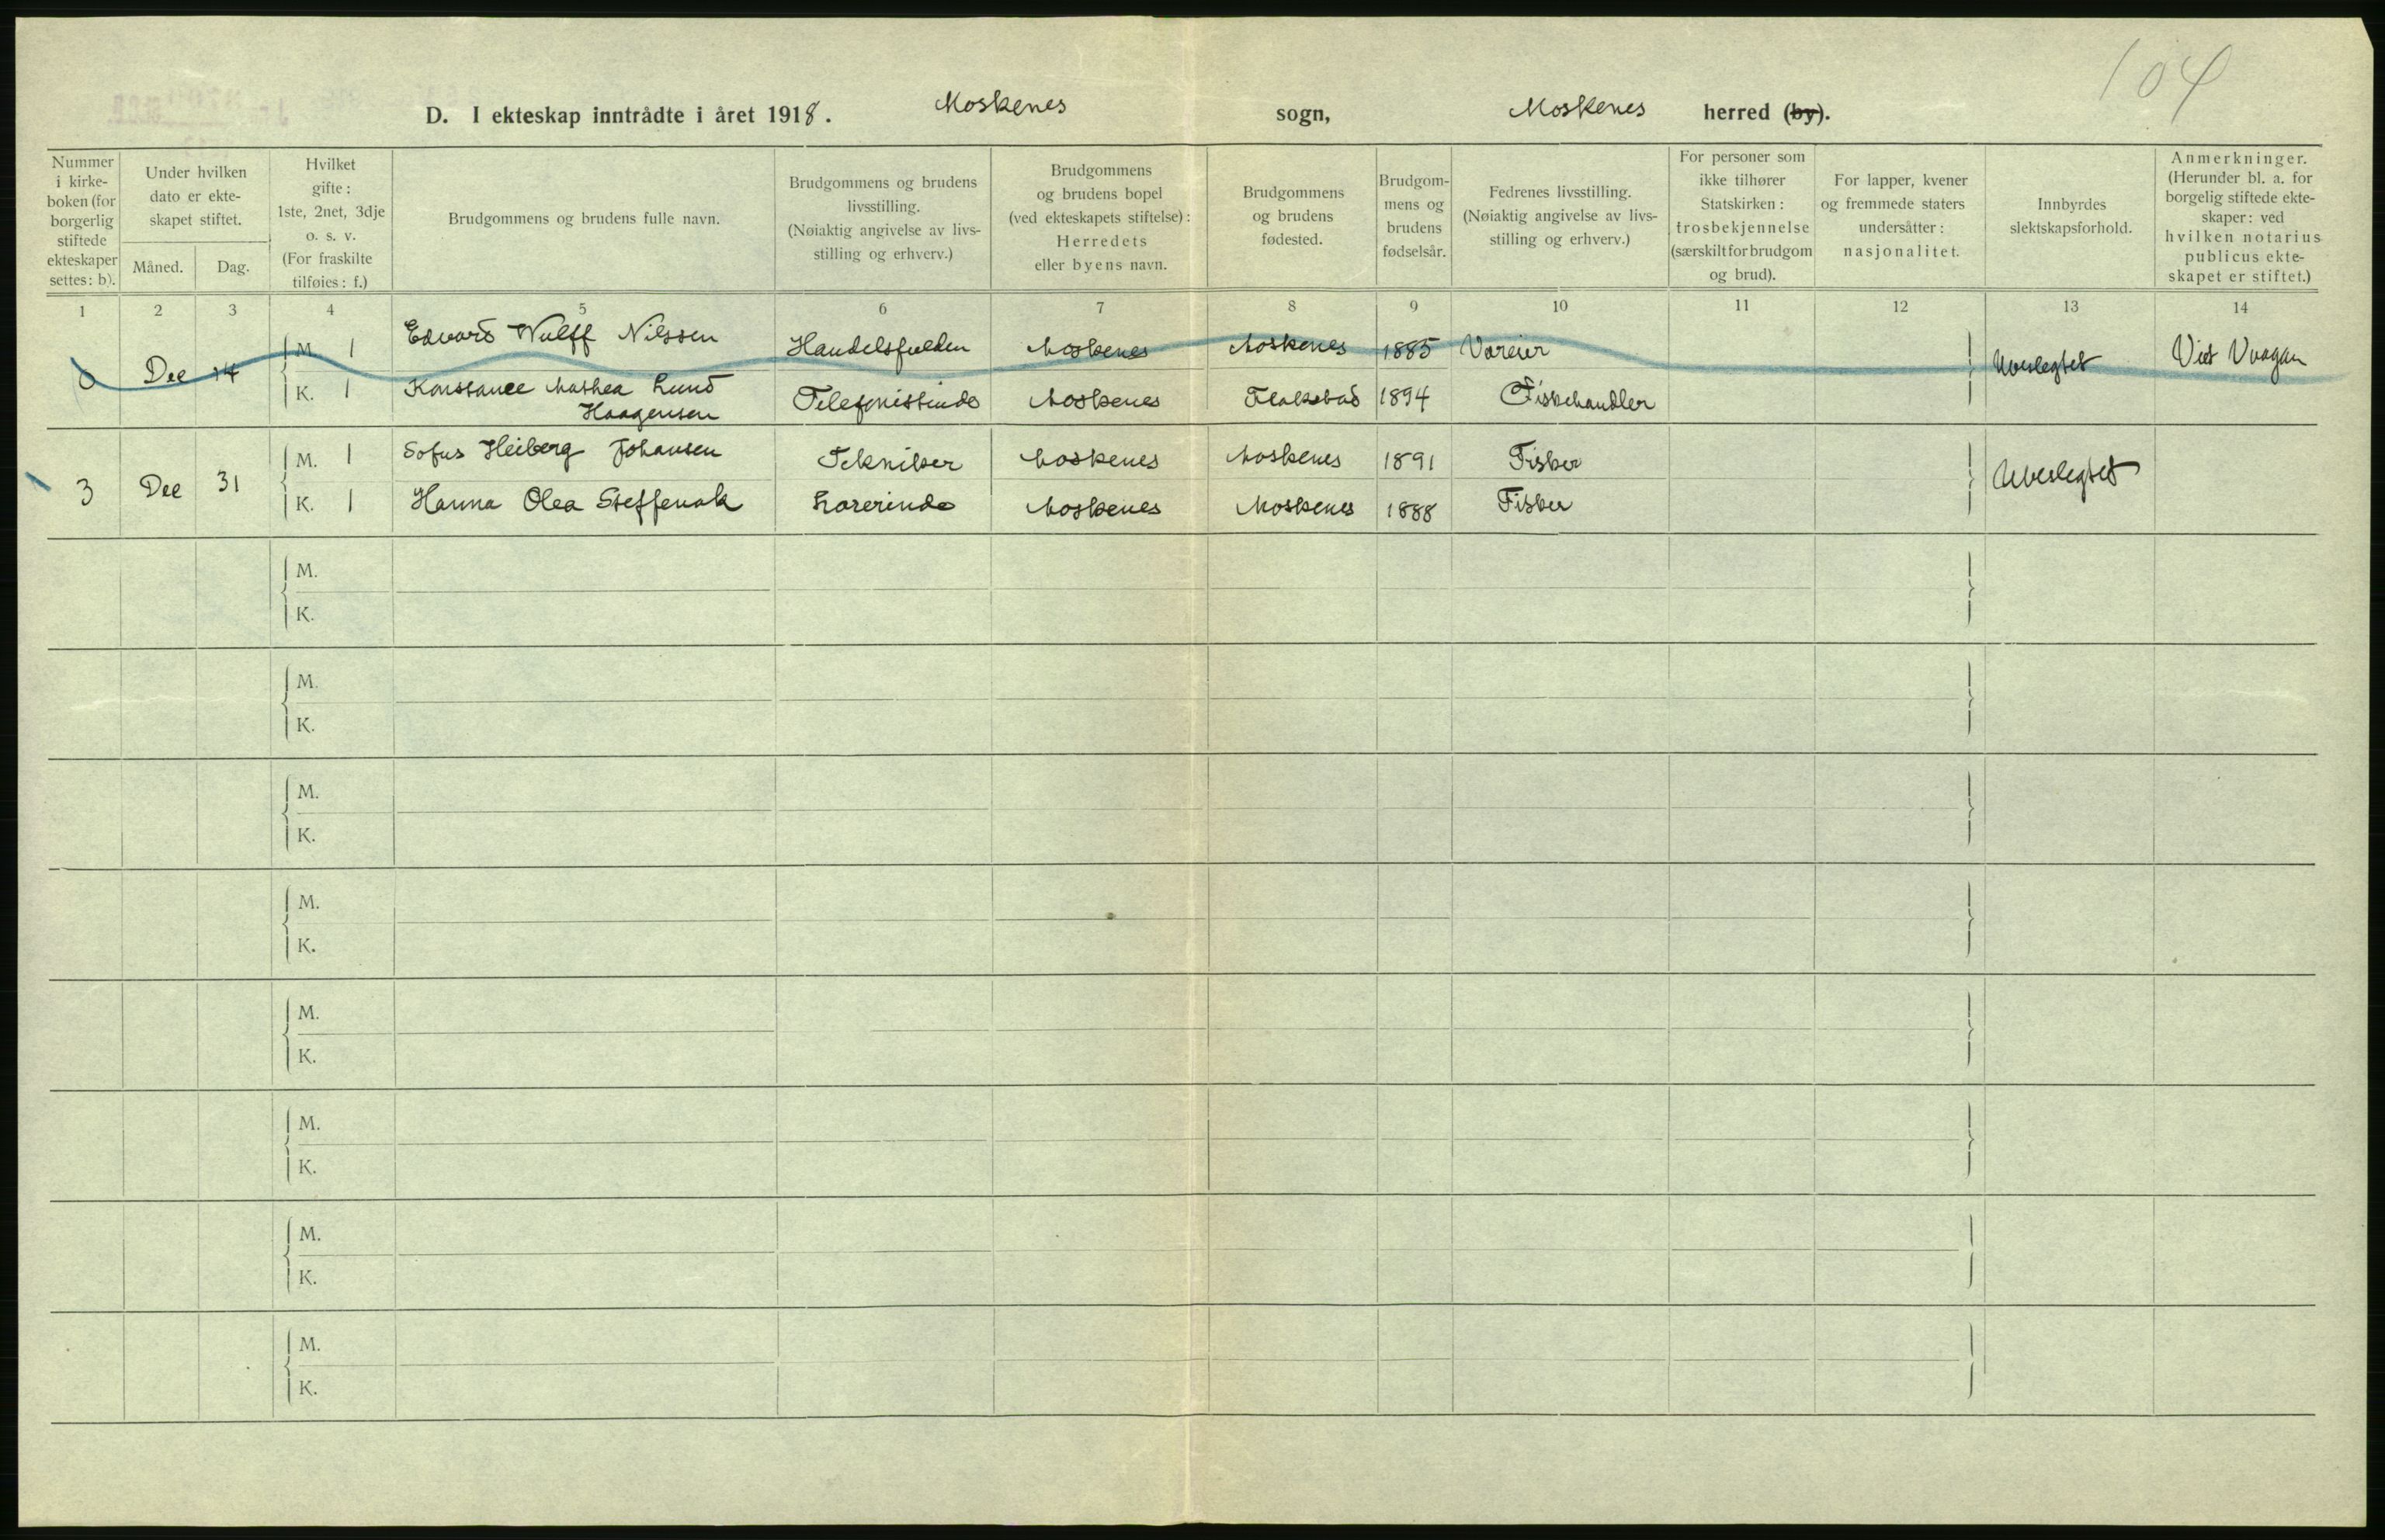 104
D. I ekteskap inntrådte i året 1918. Moskenes sogn, Moskenes herred (by).
Nummer i kirke-boken (for borgerlig stiftede ekteskaper settes: b).
Under hvilken dato er ekte-skapet stiftet.
Måned. Dag.
Hvilket gifte: 1ste, 2net, 3dje o. s. v. (For fraskilte tilføies: f.)
Brudgommens og brudens fulle navn.
Brudgommens og brudens livsstilling. (Nøiaktig angivelse av livs-stilling og erhverv.)
Brudgommens og brudens bopel (ved ekteskapets stiftelse): Herredets eller byens navn.
Brudgommens og brudens fødested.
Brudgom-mens og brudens fødselsår.
Fedrenes livsstilling. (Nøiaktig angivelse av livs-stilling og erhverv.)
For personer som ikke tilhører Statskirken: trosbekjennelse (særskilt for brudgom og brud).
For lapper, kvener og fremmede staters undersåtter: nasjonalitet.
Innbyrdes slektskapsforhold.
Anmerkninger. (Herunder bl. a. for borgelig stiftede ekte-skaper: ved hvilken notarius publicus ekte-skapet er stiftet.)
1 2 3 4 5 6 7 8 9 10 11 12 13 14
0 Dec 14 M. 1 Edvard Wulff Nilssen Moskenes Moskenes 1885 Væreier Ubeslegtet Viet Vaagan
K. 1 Konstance Mathea Lund Haagensen Telefonistinde Moskenes Flakstad 1894 Fiskehandler
3 Dec 31 M. 1 Sofus Heiberg Johansen Tekniker Moskenes Moskenes 1891 Fisker Ubeslegtet
K. 1 Hanna Olea Steffenak Lærerinde Moskenes Moskenes 1888 Fisker
M.
K.
M.
K.
M.
K.
M.
K.
M.
K.
M.
K.
M.
K.
M.
K.